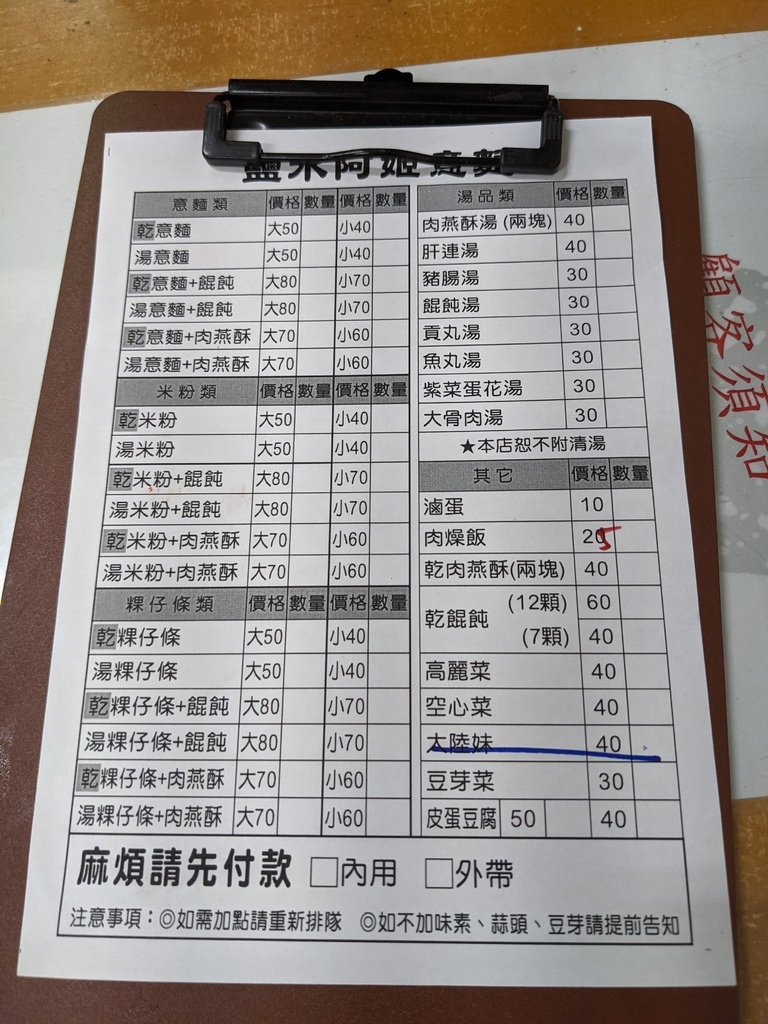 鹽水阿姬意麵
意麵類 價格 數量 價格 數量
乾意麵 大50 小40
湯意麵 大50 小40
乾意麵+餛飩 大80 小70
湯意麵+餛飩 大80 小70
乾意麵+肉燕酥 大70 小60
湯意麵+肉燕酥 大70 小60
米粉類 價格 數量 價格 數量
乾米粉 大50 小40
湯米粉 大50 小40
乾米粉+餛飩 大80 小70
湯米粉+餛飩 大80 小70
乾米粉+肉燕酥 大70 小60
湯米粉+肉燕酥 大70 小60
粿仔條類 價格 數量 價格 數量
乾粿仔條 大50 小40
湯粿仔條 大50 小40
乾粿仔條+餛飩 大80 小70
湯粿仔條+餛飩 大80 小70
乾粿仔條+肉燕酥 大70 小60
湯粿仔條+肉燕酥 大70 小60
湯品類 價格 數量
肉燕酥湯(兩塊) 40
肝連湯 40
豬腸湯 30
餛飩湯 30
貢丸湯 30
魚丸湯 30
紫菜蛋花湯 30
大骨肉湯 30
★本店恕不附清湯
其它 價格 數量
滷蛋 10
肉燥飯 25
乾肉燕酥(兩塊) 40
乾餛飩 (12顆) 60
(7顆) 40
高麗菜 40
空心菜 40
大陸妹 40
豆芽菜 30
皮蛋豆腐 50 40
麻煩請先付款 □內用 □外帶
注意事項：◎如需加點請重新排隊 ◎如不加味素、蒜頭、豆芽請提前告知
顧客須知